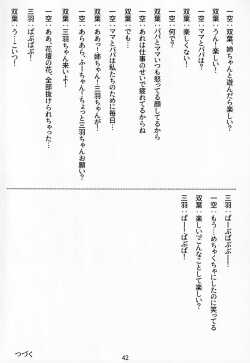 一空：双葉、姉ちゃんと遊んだら楽しい？
双葉：うん！楽しい！
一空：ママとパパは？
双葉：楽しくない！
一空：何で？
双葉：パパとママいつも怒ってる顔してるから
一空：あれは仕事のせいで疲れてるからね
双葉：でも…
一空：ママとパパは私たちのために毎日…
双葉：ああっ！姉ちゃん！三羽ちゃんが！
一空：あらあら、ふーちゃん！ちょっと三羽ちゃんお願い？
双葉：三羽ちゃん来いよー！
一空：ああ、花壇の花、全部抜けられちゃった…
三羽：ばぶばぶ！
双葉：うーこいつ！
三羽：ばーぶばぶぶー！
一空：もうー！めちゃくちゃにしたのに笑ってる
双葉：楽しい？こんなことして楽しい？
三羽：ばーばぶばー！
42
つづく